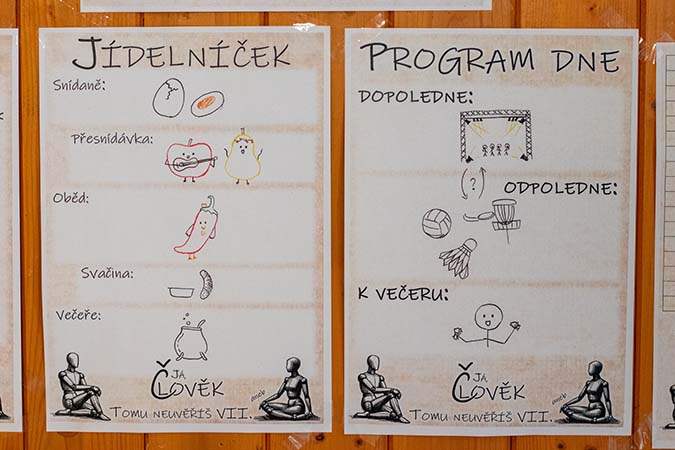 JÍDELNÍČEK
Snídaně:
Přesnídávka:
Oběd:
Svačina:
Večeře:
JÁ
ČLOVĚK
aneb
TOMU NEUVĚŘÍŠ VII.
PROGRAM DNE
DOPOLEDNE:
?
ODPOLEDNE:
K VEČERU:
JÁ
ČLOVĚK
aneb
TOMU NEUVĚŘÍŠ VII.